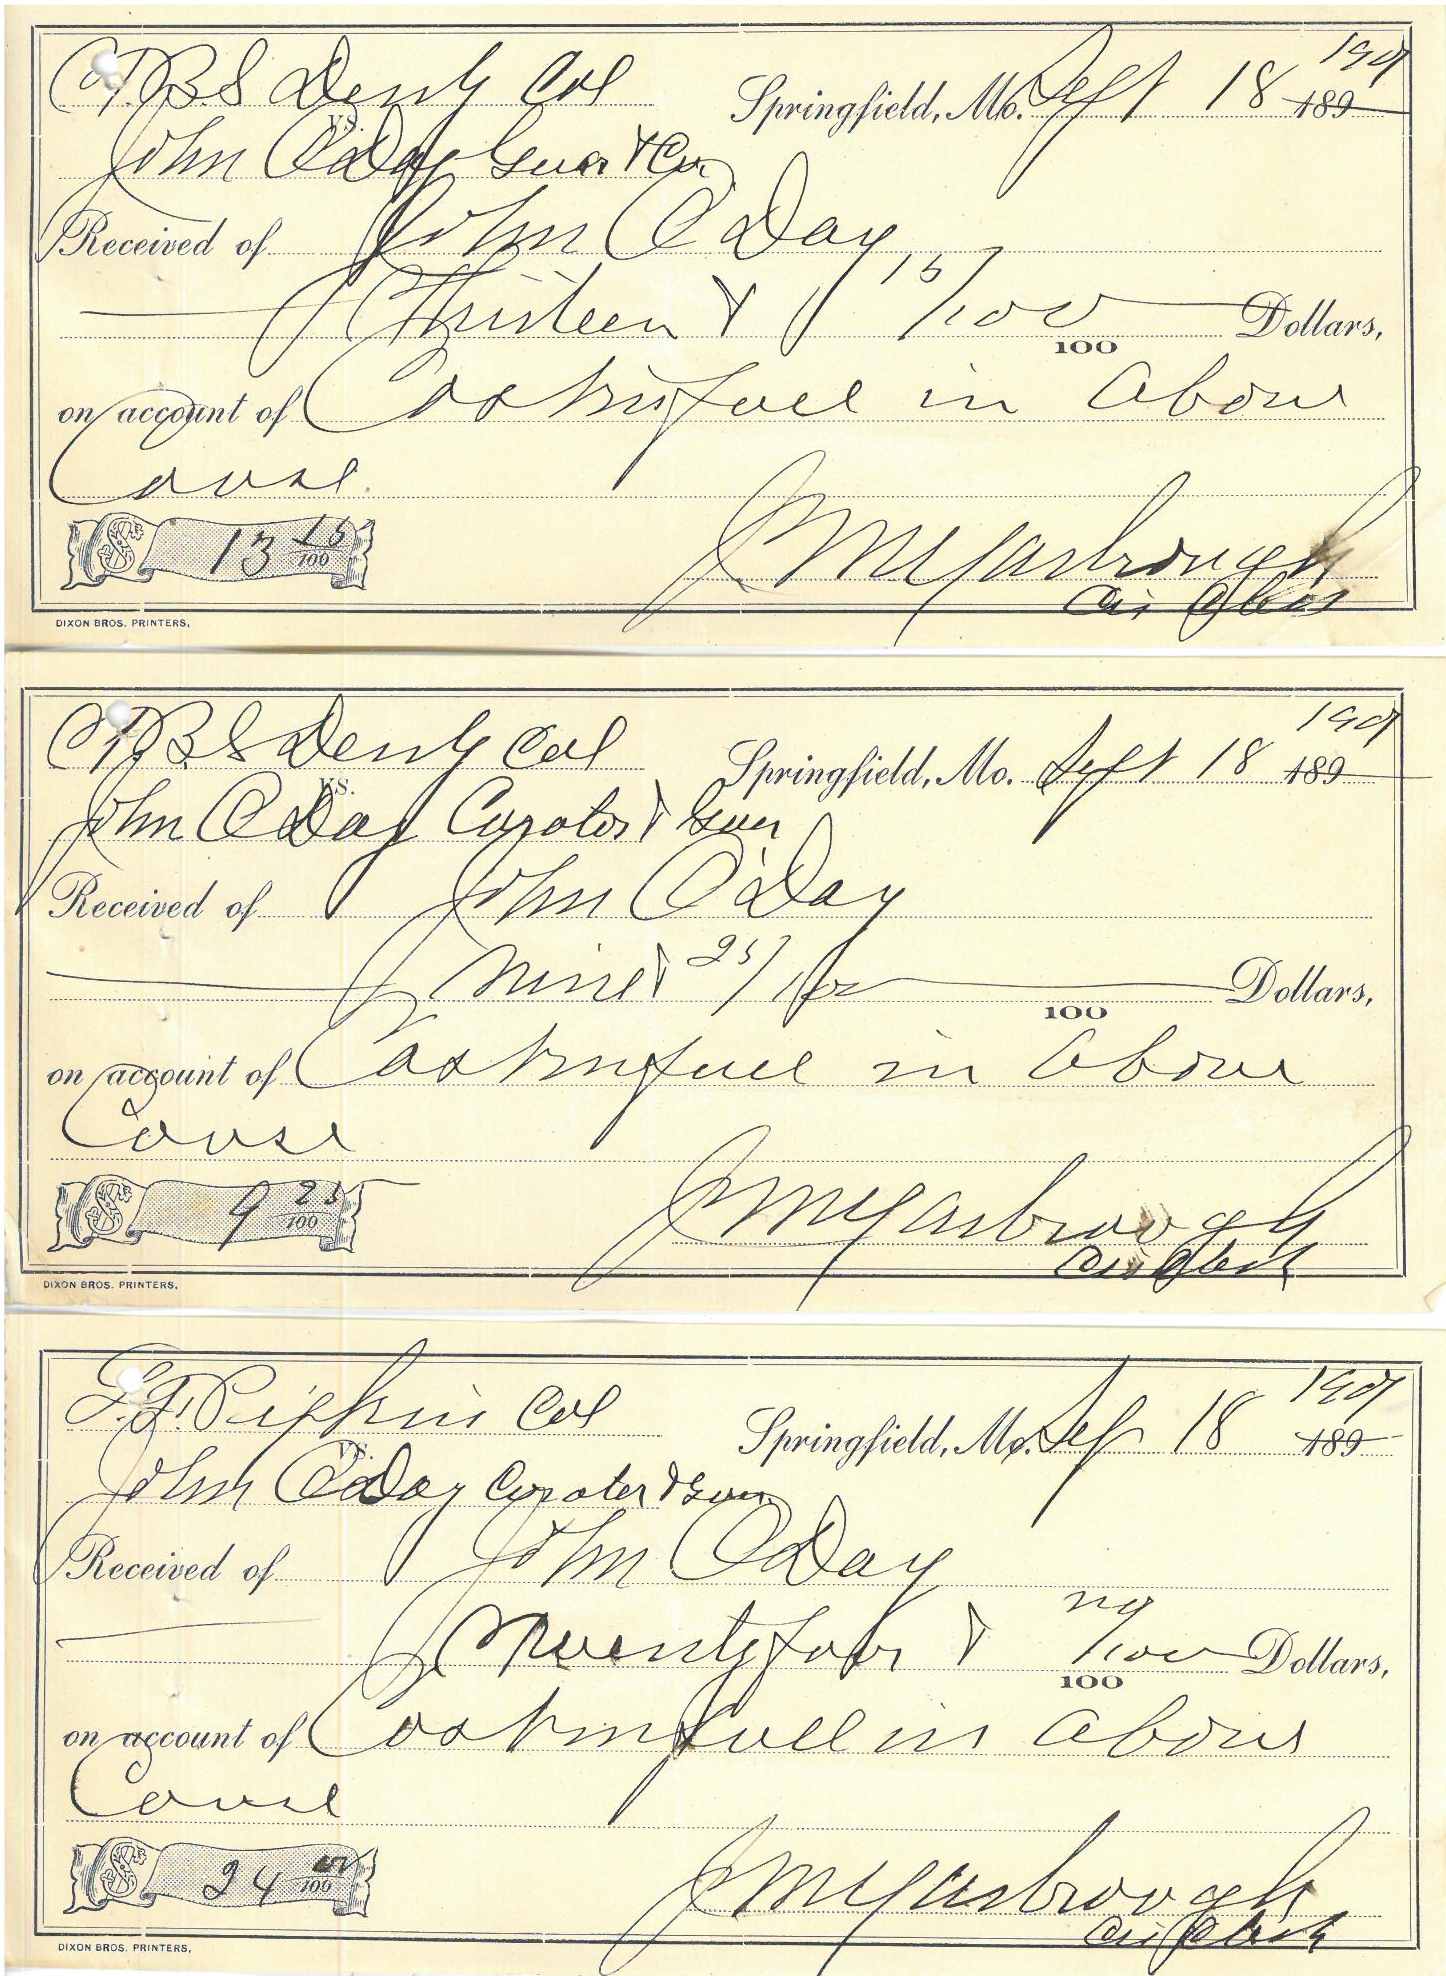 C. B. S. Denty Col
vs.
Springfield, Mo. Sept 18 1901 189
John O'Day Guar & Cur
Received of John O'Day
Thirteen & 15/100 100 Dollars,
on account of Costs in full in above
Cause
$ 13 15/100
J M Yarbrough
Cir Clerk
DIXON BROS. PRINTERS.
C. B. S. Denty Col
vs.
Springfield, Mo. Sept 18 1901 189
John O'Day Curator & Guar
Received of John O'Day
Nine & 25/100 100 Dollars,
on account of Costs in full in above
Cause
$ 9 25/100
J M Yarbrough
Cir Clerk
DIXON BROS. PRINTERS.
Pipkin Col
vs.
Springfield, Mo. Sep 18 1901 189
John O'Day Curator & Guar
Received of John O'Day
Twenty four & no/100 100 Dollars,
on account of Costs in full in above
Cause
$ 24 00/100
J M Yarbrough
Cir Clerk
DIXON BROS. PRINTERS.